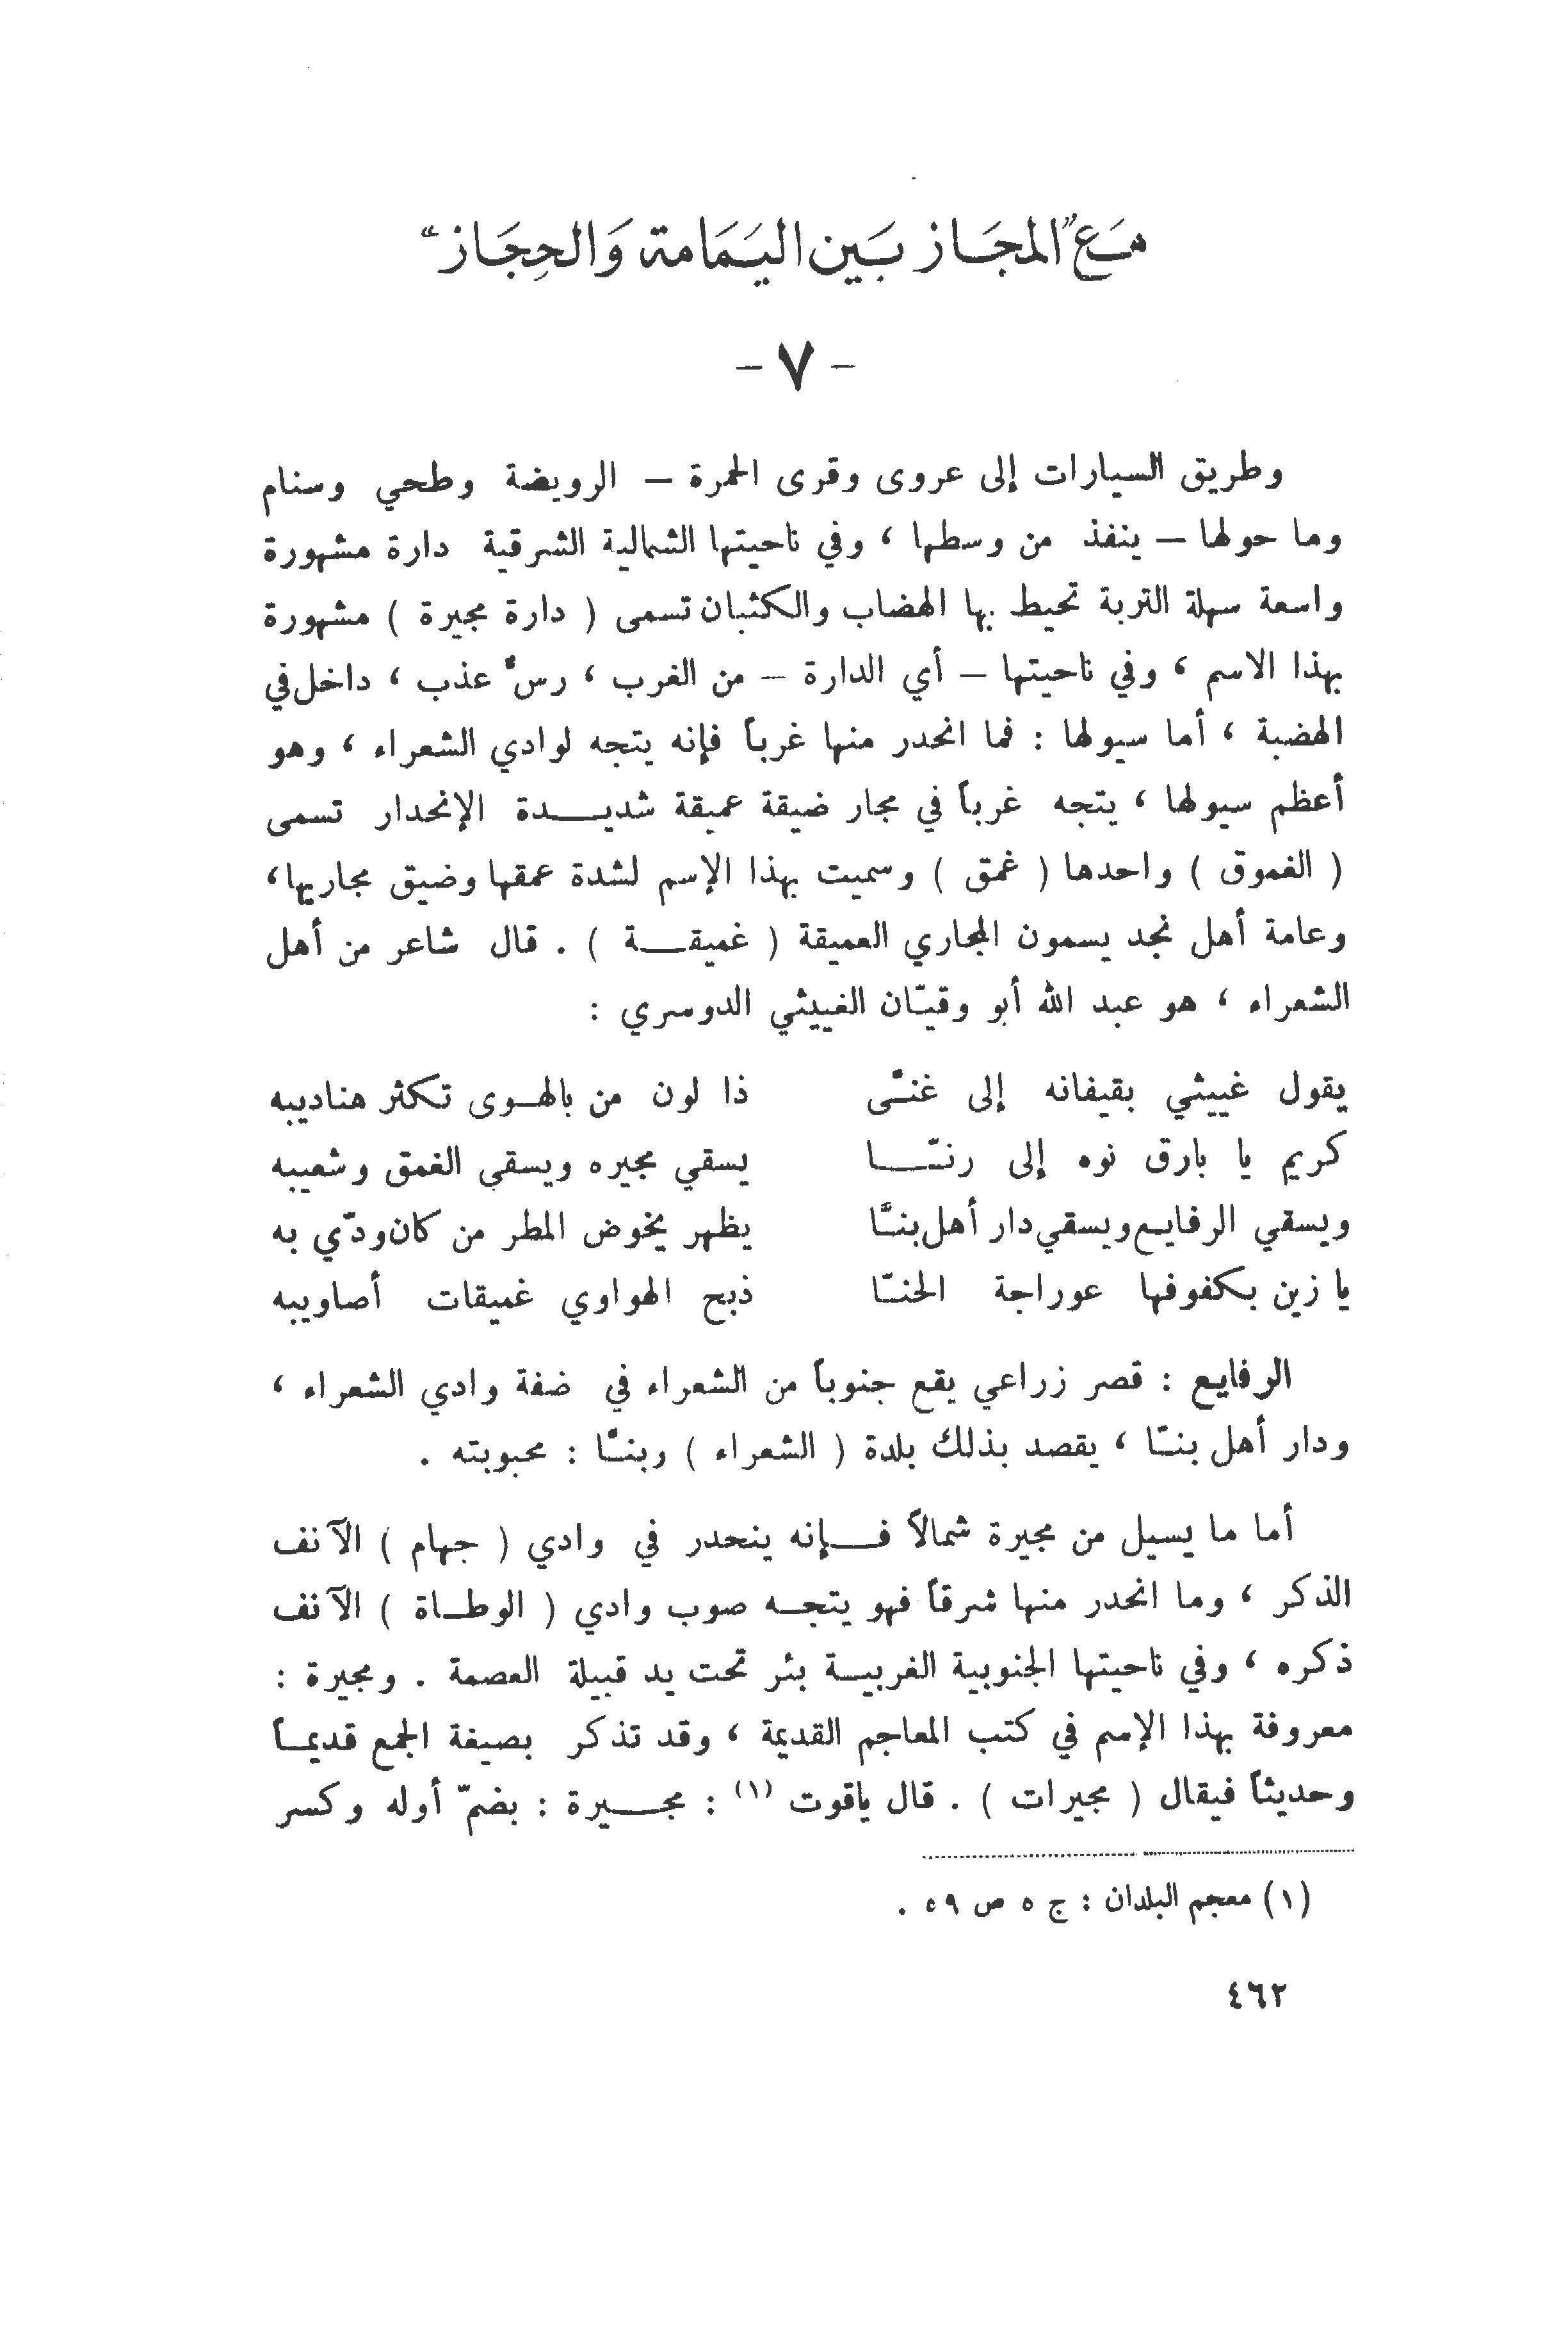 مَع "المجَاز بَين اليَمَامة وَالحِجَاز"
- ٧ -
وطريق السيارات إلى عروى وقرى الحمرة – الرويضة وطحي وسنام
وما حولها – ينفذ من وسطها ، وفي ناحيتها الشمالية الشرقية دارة مشهورة
واسعة سهلة التربة تحيط بها الهضاب والكثبان تسمى ( دارة مجيرة ) مشهورة
بهذا الاسم ، وفي ناحيتها – أي الدارة – من الغرب ، رسٌّ عذب ، داخل في
الهضبة ، أما سيولها : فما انحدر منها غرباً فإنه يتجه لوادي الشعراء ، وهو
أعظم سيولها ، يتجه غرباً في مجار ضيقة عميقة شديـــدة الإنحدار تسمى
( الغموق ) واحدها ( غمق ) وسميت بهذا الإسم لشدة عمقها وضيق مجاريها ،
وعامة أهل نجد يسمون المجاري العميقة ( غميقـــة ) . قال شاعر من أهل
الشعراء ، هو عبد الله أبو وقيّان الغييثي الدوسري :
يقول غييثي بقيفانه إلى غنَّى ذا لون من بالهـوى تكثر هناديبه
كريم يا بارق نوه إلى رنّـــا يسقي مجيره ويسقي الغمق وشعيبه
ويسقي الرفايـع ويسقي دار أهل بنَّا يظهر يخوض المطر من كان ودّي به
يا زين بكفوفها عوراجة الحنّا ذبح الهواوي غميقات أصاويبه
الرفايـع : قصر زراعي يقع جنوباً من الشعراء في ضفة وادي الشعراء ،
ودار أهل بنّا ، يقصد بذلك بلدة ( الشعراء ) وبنَّا : محبوبته .
أما ما يسيل من مجيرة شمالاً فـــإنه ينحدر في وادي ( جهام ) الآنف
الذكر ، وما انحدر منها شرقاً فهو يتجـه صوب وادي ( الوطـاة ) الآنف
ذكره ، وفي ناحيتها الجنوبية الغربيـة بئر تحت يد قبيلة العصمة . ومجيرة :
معروفة بهذا الإسم في كتب المعاجم القديمة ، وقد تذكر بصيغة الجمع قديمـاً
وحديثاً فيقال ( مجيرات ) . قال ياقوت (١) : مجـــيرة : بضمّ أوله وكسر
(١) معجم البلدان : ج ٥ ص ٥٩ .
٤٦٢